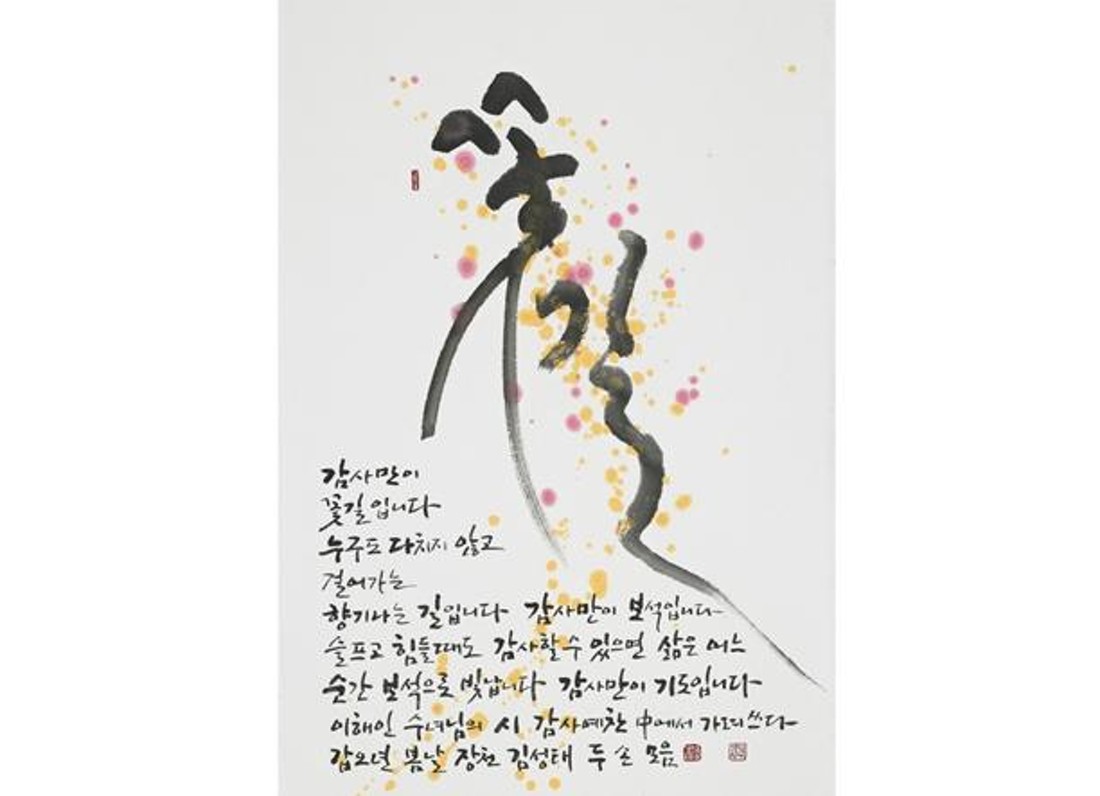 꽃길
감사만이
꽃길입니다
누구도 다치지 않고
걸어가는
향기나는 길입니다 감사만이 보석입니다
슬프고 힘들때도 감사할수 있으면 삶은 어느
순간 보석으로 빛납니다 감사만이 기도입니다
이해인 수녀님의 시 감사예찬 中에서 가려쓰다
갑오년 봄날 장천 김성태 두 손 모음